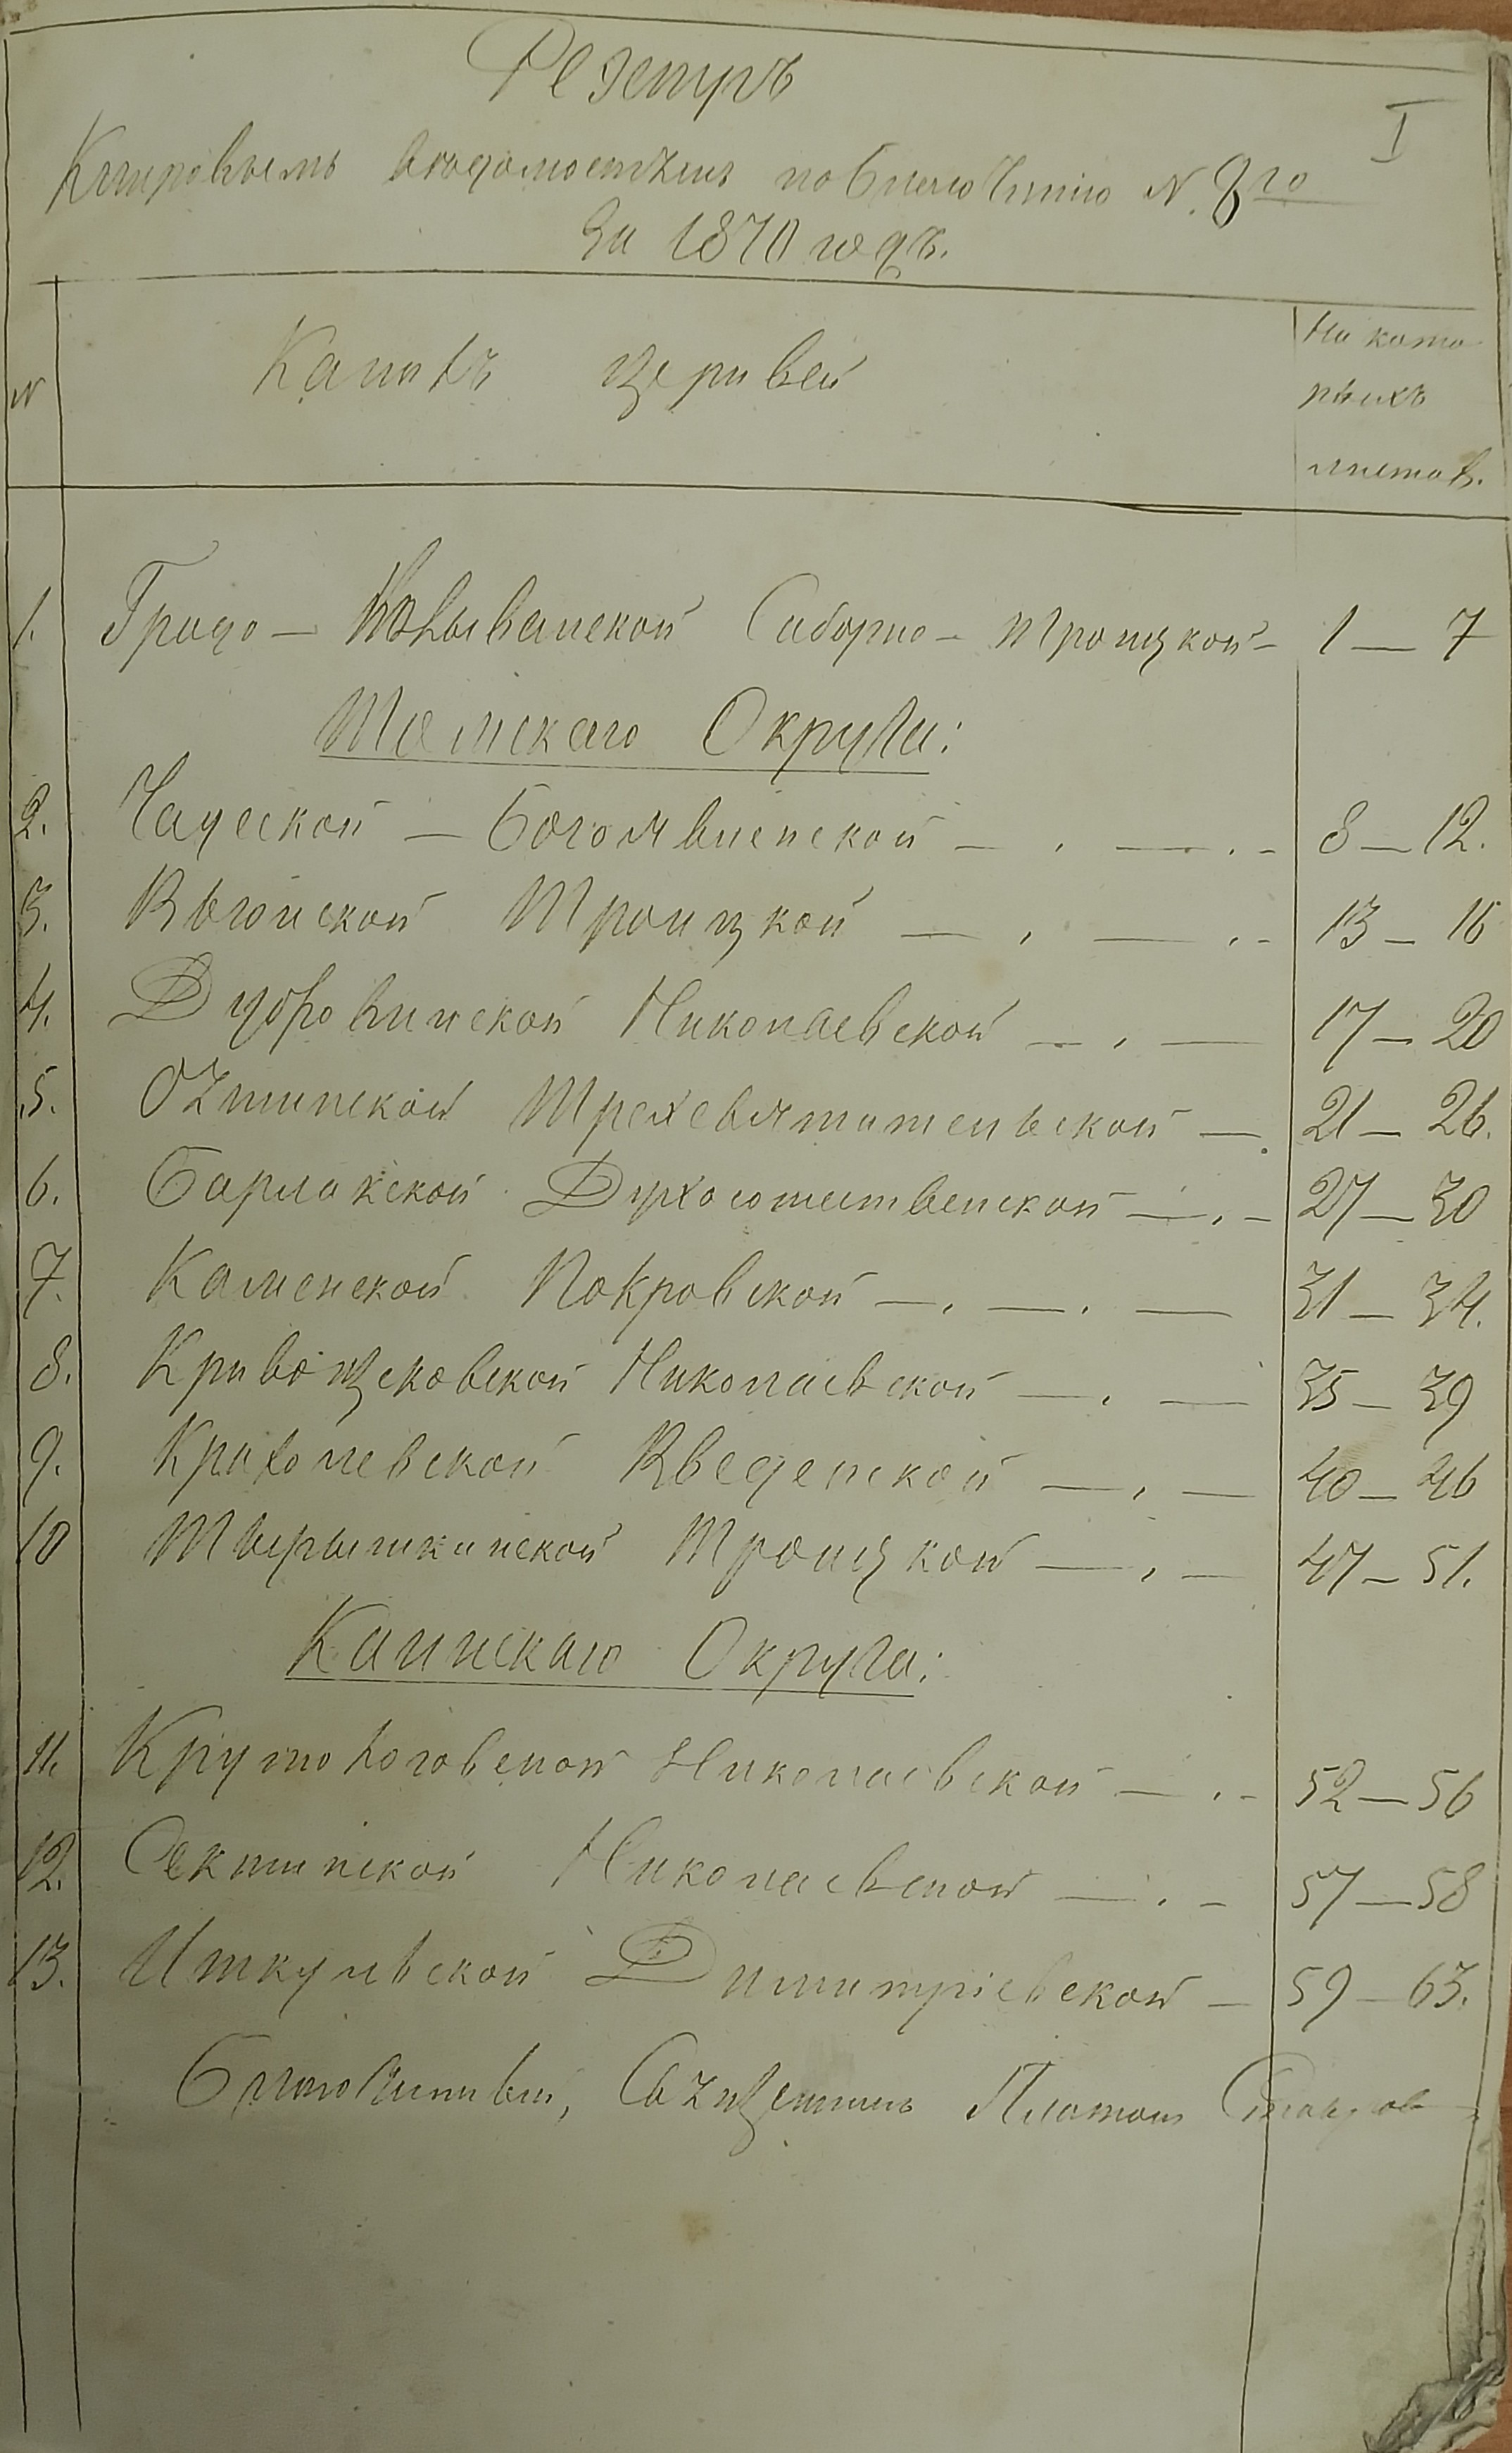 Реэстръ
I
Клировымъ вѣдомостямъ по благочинію N. 8го
За 1870 годъ.
N Какихъ церквей На кото
рыхъ
листах.
1. Градо — Колыванской Соборно — Троицкой — 1 — 7
Томскаго Округа:
2. Чаусской — Богоявленской — . — . - 8 — 12.
3. Вьюнской Троицкой — . — . - 13 — 16
4. Дубровинской Николаевской — . — 17 — 20
5. Ояшинской Трехсвятительской — . 21 — 26.
6. Барлакской Духосошественской — . - 27 — 30
7. Каменской Покровской — . — . — 31 — 34.
8. Кривощековской Николаевской — . — 35 — 39
9. Крохолевской Введенской — . — 40 — 46
10 Тырышкинской Троицкой — . — 47 — 51.
Каинскаго Округа:
11. Крутологовской Николаевской — . - 52 — 56
12. Сектинской Николаевской — . - 57 — 58
13. Иткульской Димитріевской — 59 — 63.
Благочинный, Священникъ Платонъ